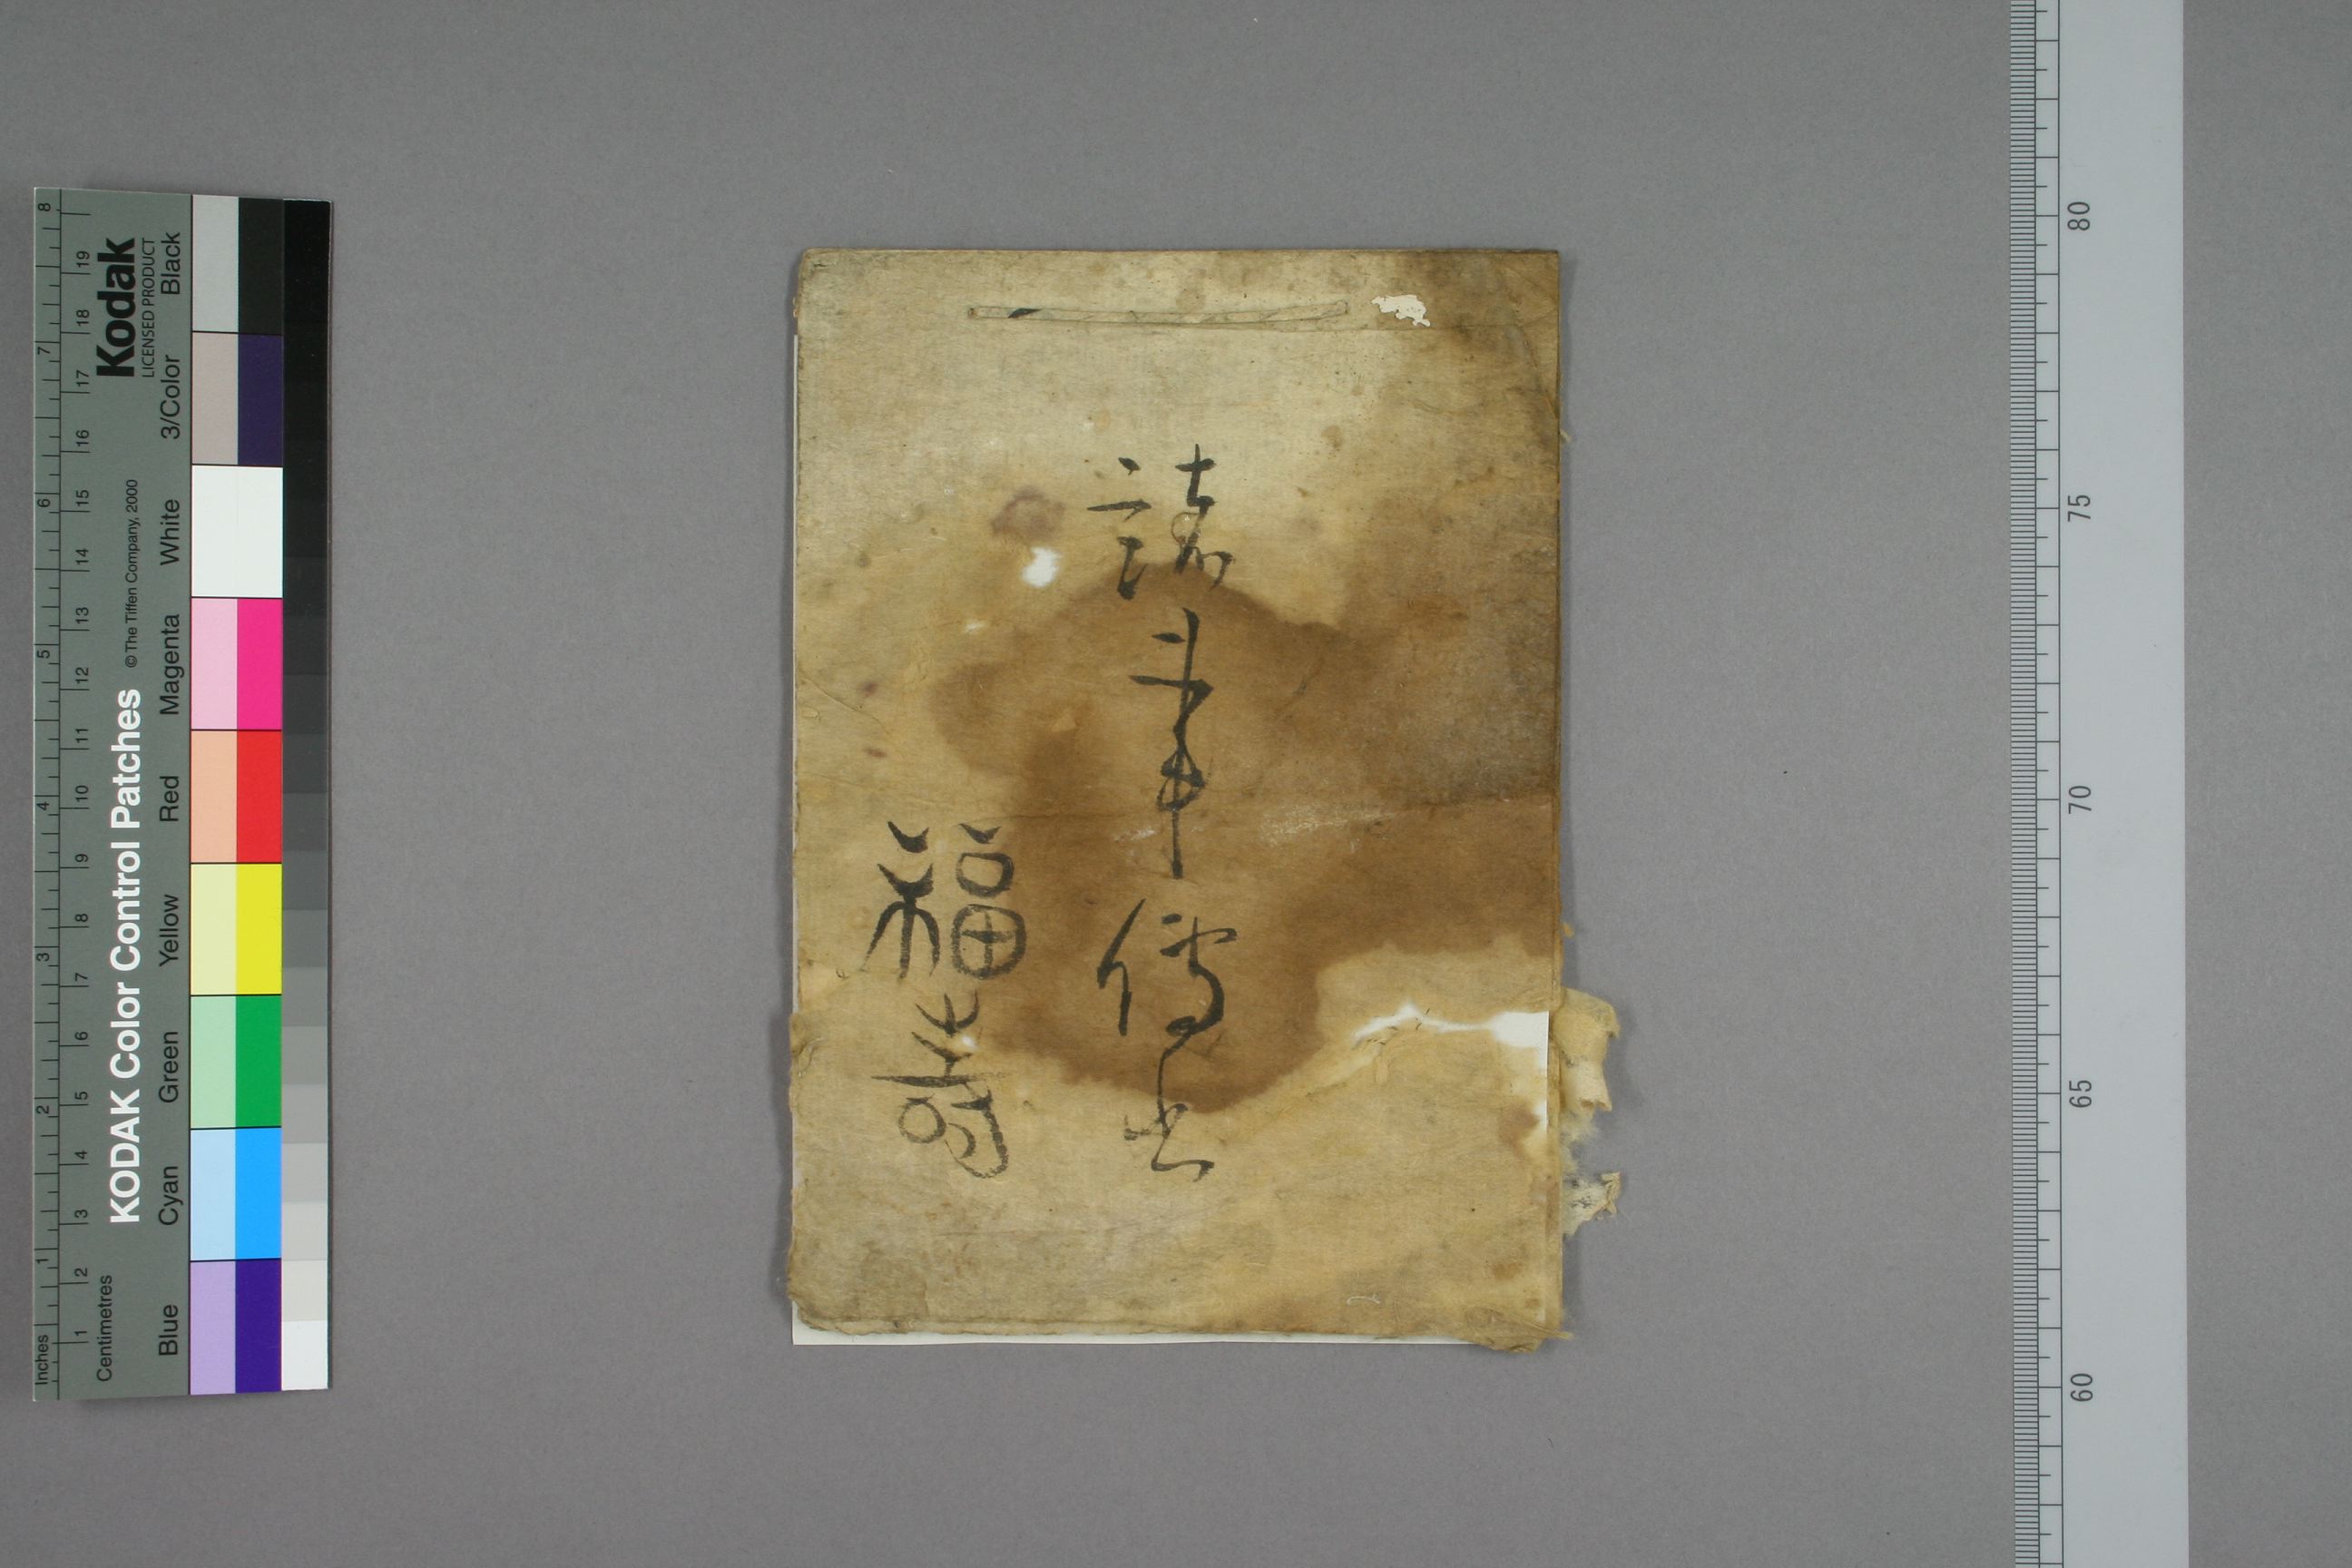 諸事傳書
福
KODAK Color Control Patches
© The Tiffen Company, 2000
Kodak
LICENSED PRODUCT
Inches 1 2 3 4 5 6 7 8
Centimetres 1 2 3 4 5 6 7 8 9 10 11 12 13 14 15 16 17 18 19
Blue Cyan Green Yellow Red Magenta White 3/Color Black
80
75
70
65
60